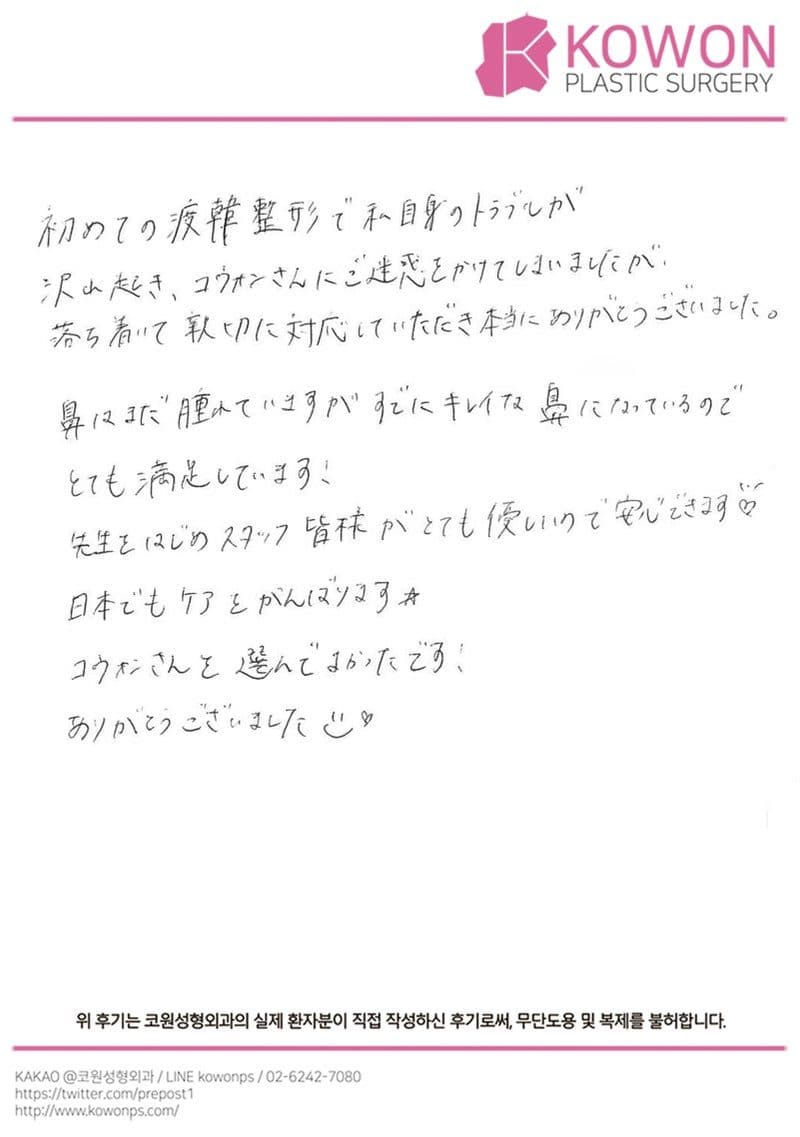 KOWON
PLASTIC SURGERY
初めての渡韓整形で私自身のトラブルが
沢山起き、コウォンさんにご迷惑をかけてしまいましたが、
落ち着いて親切に対応していただき本当にありがとうございました。
鼻はまだ腫れていますがすでにキレイな鼻になっているので
とても満足しています!
先生をはじめスタッフ皆様がとても優しいので安心できます♡
日本でもケアをがんばります☆
コウォンさんを選んでよかったです!
ありがとうございました
위 후기는 코원성형외과의 실제 환자분이 직접 작성하신 후기로써, 무단도용 및 복제를 불허합니다.
KAKAO @코원성형외과 / LINE kowonps / 02-6242-7080
https://twitter.com/prepost1
http://www.kowonps.com/